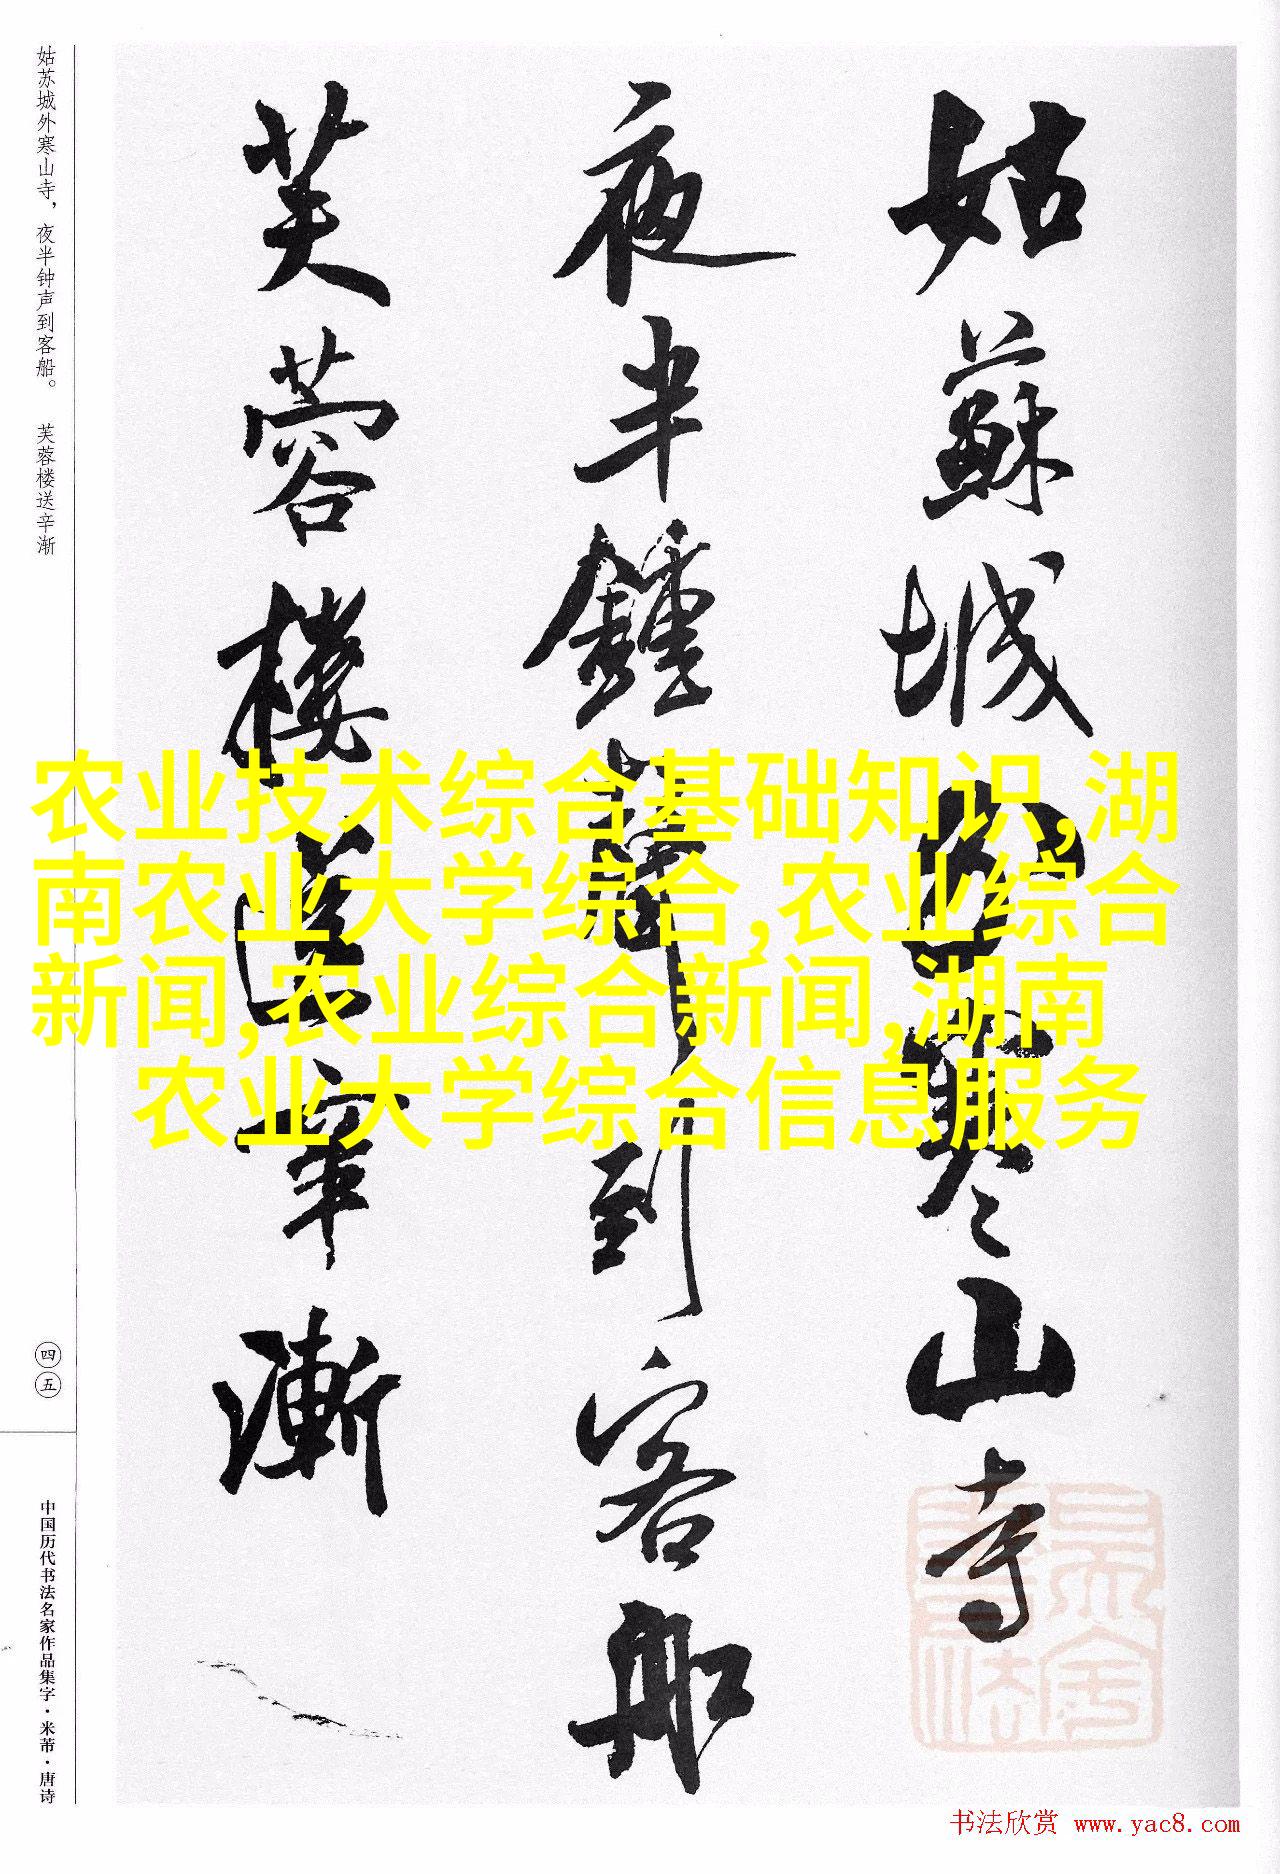 姑苏城外寒山寺，夜半钟声到客船。 芙蓉楼送辛渐
姑蘇城外寒山寺
夜半鐘聲到客船
芙蓉樓送辛漸
农业技术综合基础知识,湖
南农业大学综合,农业综合
新闻,农业综合新闻,湖南
农业大学综合信息服务
四五
中国历代书法名家作品集字·米芾·唐诗
书法欣赏 www.yac8.com